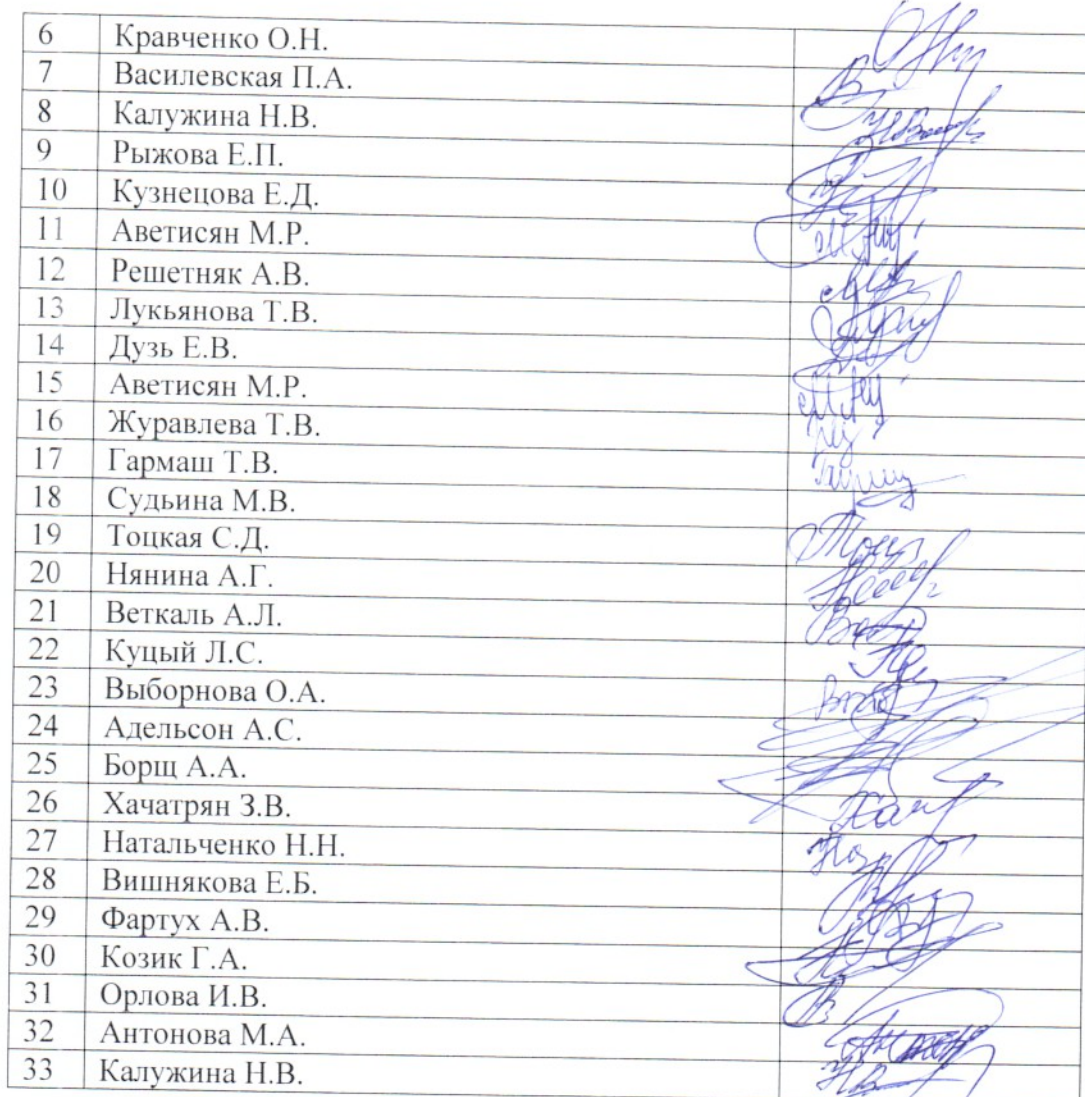 6 Кравченко О.Н.
7 Василевская П.А.
8 Калужина Н.В.
9 Рыжова Е.П.
10 Кузнецова Е.Д.
11 Аветисян М.Р.
12 Решетняк А.В.
13 Лукьянова Т.В.
14 Дузь Е.В.
15 Аветисян М.Р.
16 Журавлева Т.В.
17 Гармаш Т.В.
18 Судьина М.В.
19 Тоцкая С.Д.
20 Нянина А.Г.
21 Веткаль А.Л.
22 Куцый Л.С.
23 Выборнова О.А.
24 Адельсон А.С.
25 Борщ А.А.
26 Хачатрян З.В.
27 Натальченко Н.Н.
28 Вишнякова Е.Б.
29 Фартух А.В.
30 Козик Г.А.
31 Орлова И.В.
32 Антонова М.А.
33 Калужина Н.В.